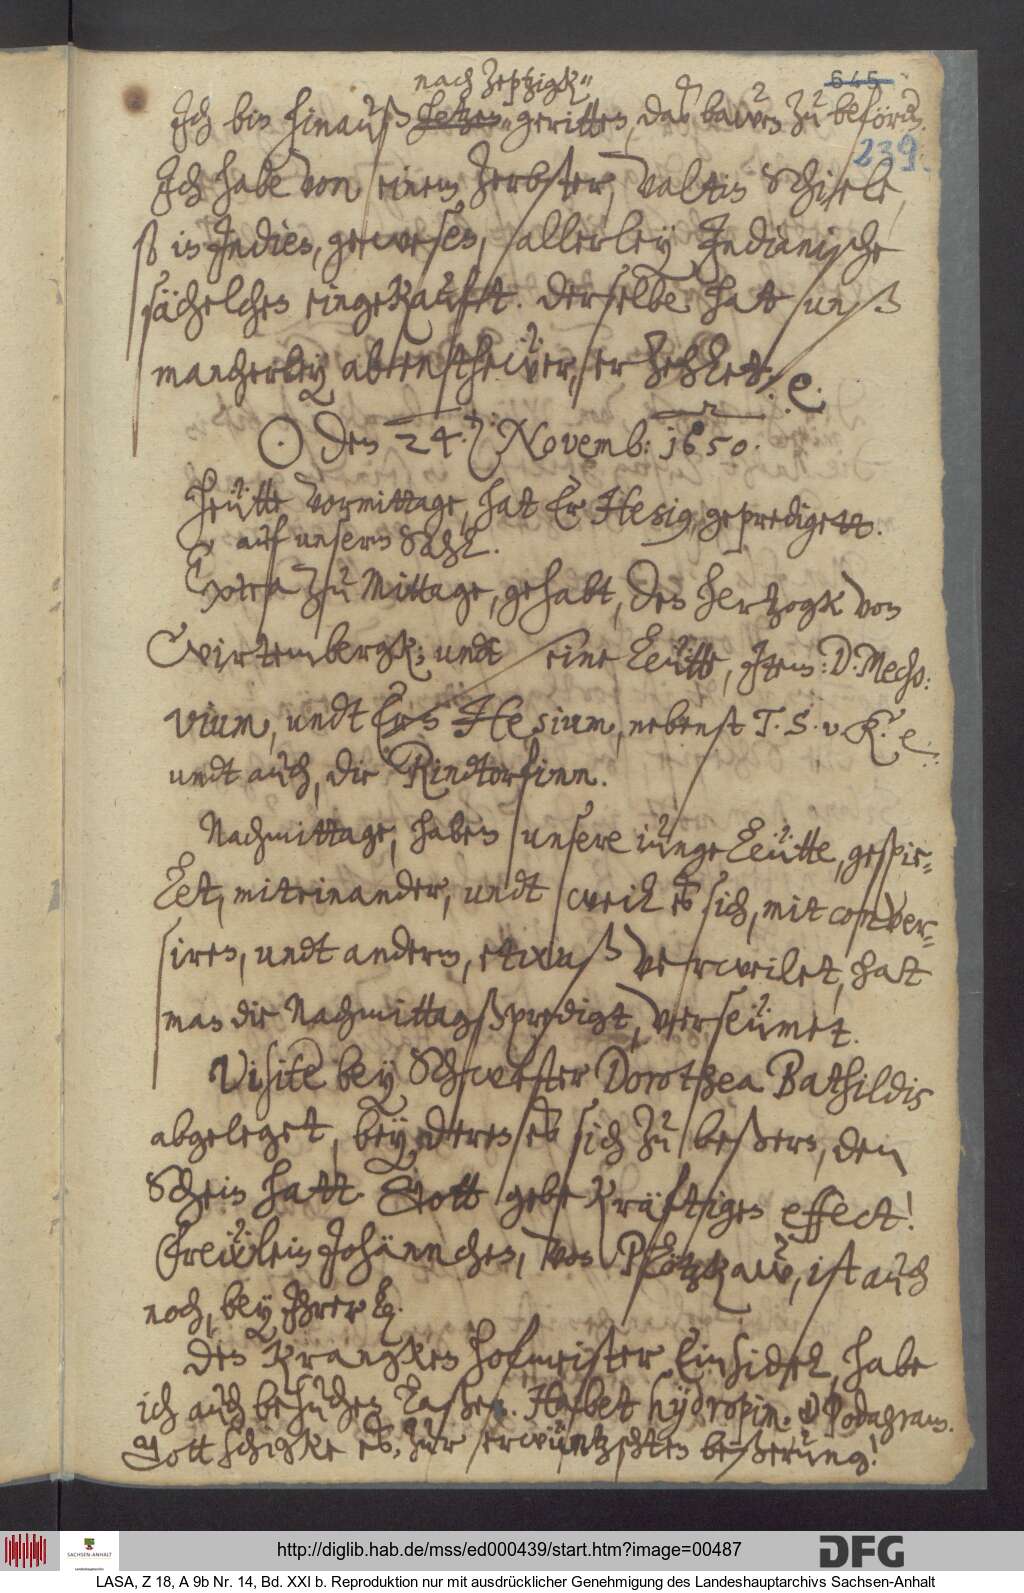 645
nach Zeptzigk
Jch bin hinauß hetzen geritten, das bawen zu beförd.
239.
Jch habe von einem Zerbster, Valtin Schiele,
ß in Jndien, gewesen, allerley Jndianische
sächelchen eingekaufft. Derselbe hat unß
mancherley abentheẅer, erzehlet, e.
⊙ den 24. Novemb: 1650.
Heütte vormittage, hat Er Hesig, geprediget
auf unserm Sahl.
Extra zu Mittage, gehabt, den Hertzogk von
Wirtembergk; undt seine Leütte, Jtem: D. Mecho:
vium, undt Ern Hesium, nebenst T. S. v. K. e.
undt auch, die Rindtorfinn.
Nachmittage, haben unsere iunge Leütte, gespie¬
let, miteinander, undt weil es sich, mit conver¬
siren, undt anderm, etwaß verweilet, hat
man die Nachmittagßpredigt, verseümet.
Visite bey Schwester Dorothea Bathildis
abgeleget, bey deren es sich zu beßern, den
Schein hatt. Gott gebe kräftigen effect!
Freẅlein Johännchen, von Plötzkaw, ist auch
noch, bey Jhrer L.
Den krangken Hofmeister Einsidel, habe
ich auch besuchen laßen. Habet hydropim. & Podagram.
Gott schigke es, zur erwüntzschten beßerung!
http://diglib.hab.de/mss/ed000439/start.htm?image=00487
SACHSEN-ANHALT
DFG
LASA, Z 18, A 9b Nr. 14, Bd. XXI b. Reproduktion nur mit ausdrücklicher Genehmigung des Landeshauptarchivs Sachsen-Anhalt